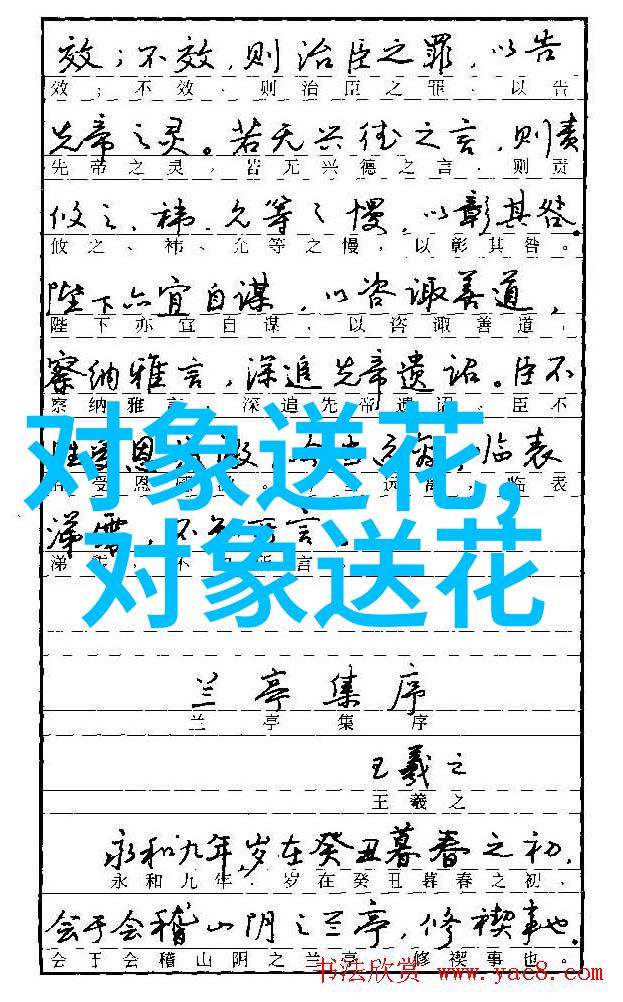 效；不效，则治臣之罪，以告
效；不效、则治臣之罪、以告
先帝之灵。若无兴德之言，则责
先帝之灵，若无兴德之言、则责
攸之、祎、允等之慢，以彰其咎。
攸之、祎、允等之慢，以彰其咎。
陛下亦宜自谋，以咨诹善道，
陛下亦宜自谋，以咨诹善道，
察纳雅言，深追先帝遗诏。臣不
察纳雅言，深追先帝遗诏、臣不
受恩 临表
受恩 远 临表
涕零，不 言
涕 不 言
对象送花，
对象送花
兰亭集序
兰亭集序
王羲之
王羲之
永和九年，岁在癸丑暮春之初，
永和九年，岁在癸丑暮春之初、
会于会稽山阴之兰亭，修禊事也。
会于会稽山阴之兰亭 修禊事也。
书法欣赏 www.yac8.com